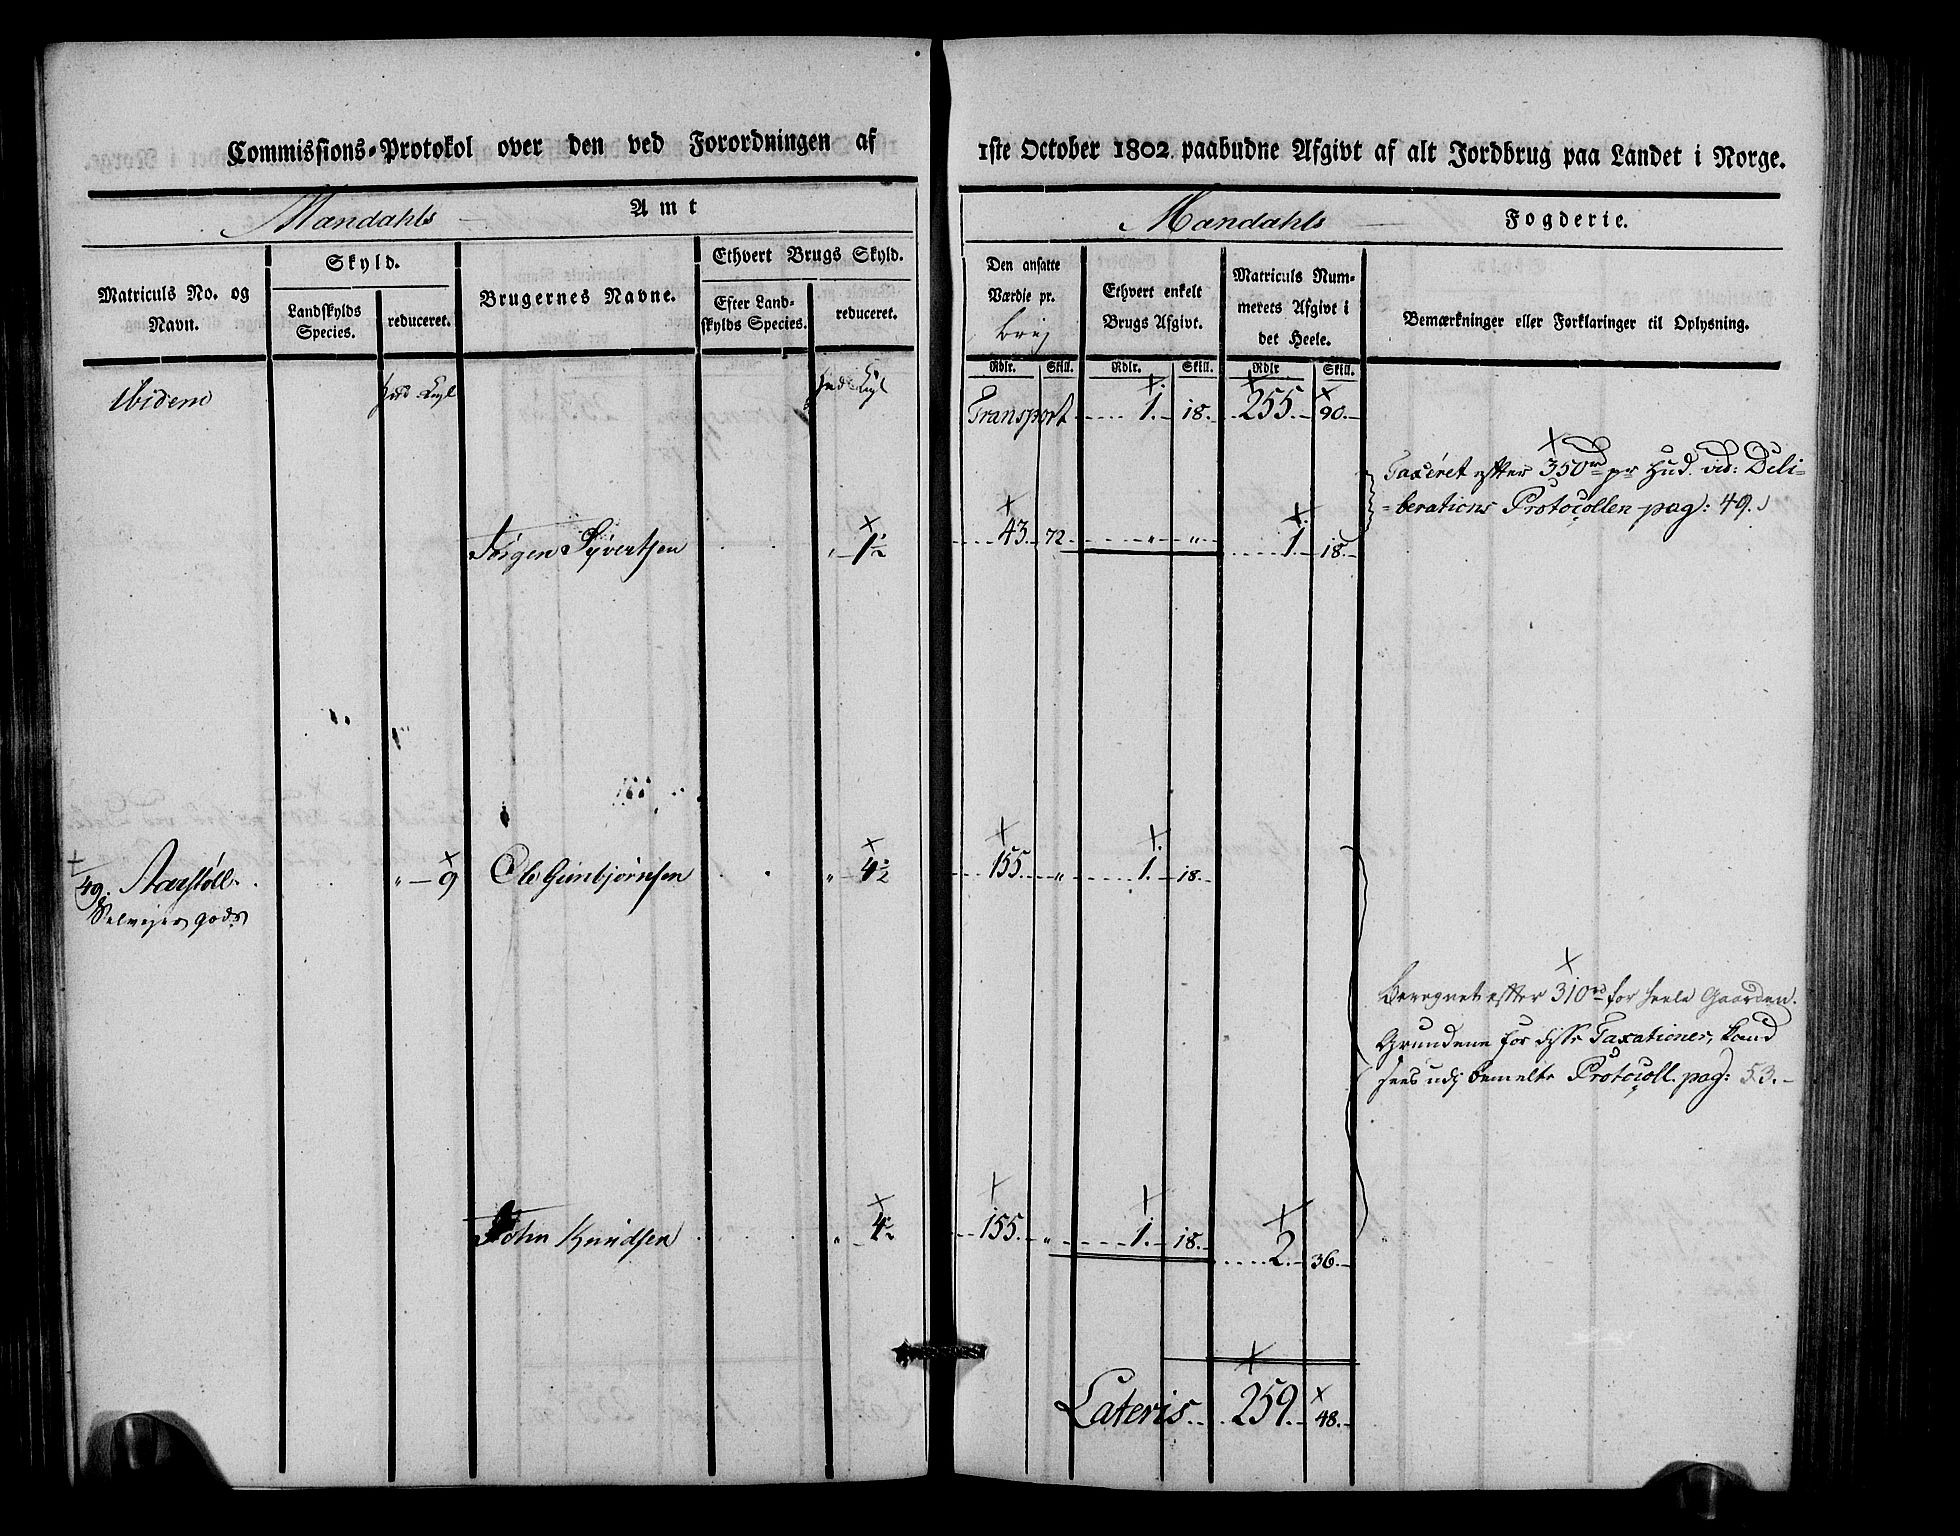 Commissions-Protokol over den ved Forordningen af
Mandahls Amt
Matriculs No. og Navn.
Skyld.
Landskylds Species.
reduceret.
Brugernes Navne.
Ethvert Brugs Skyld.
Efter Land-
skylds Species.
reduceret.
Ibidem
Hud Engl
Hud Engl
Jørgen Syvertsen " 1½
49. Aarstøll " 9 Ole Gunbjørnsen " 4½
Selveiergods
John Knudsen " 4½
1ste October 1802 paabudne Afgivt af alt Jordbrug paa Landet i Norge.
Mandahls Fogderie.
Den ansatte
Værdie pr.
Brug
Ethvert enkelt
Brugs Afgivt.
Matriculs Num-
merets Afgivt i
det Heele.
Bemærkninger eller Forklaringer til Oplysning.
Rdlr. Skill. Rdlr. Skill. Rdlr Skill.
Transport 1. 18. 255. 90.
Taxeret efter 350 rd pr Hud. vid: Deli-
-berations Protocollen pag: 49.
43. 72 " " 1. 18.
155. " 1. 18.
Beregnet efter 310 rd for heele Gaarden.
Grundene for disse Taxationer, kand
sees udj bemelte Protocoll. pag: 53.
155. " 1. 18. 2. 36.
Lateris 259. 48.